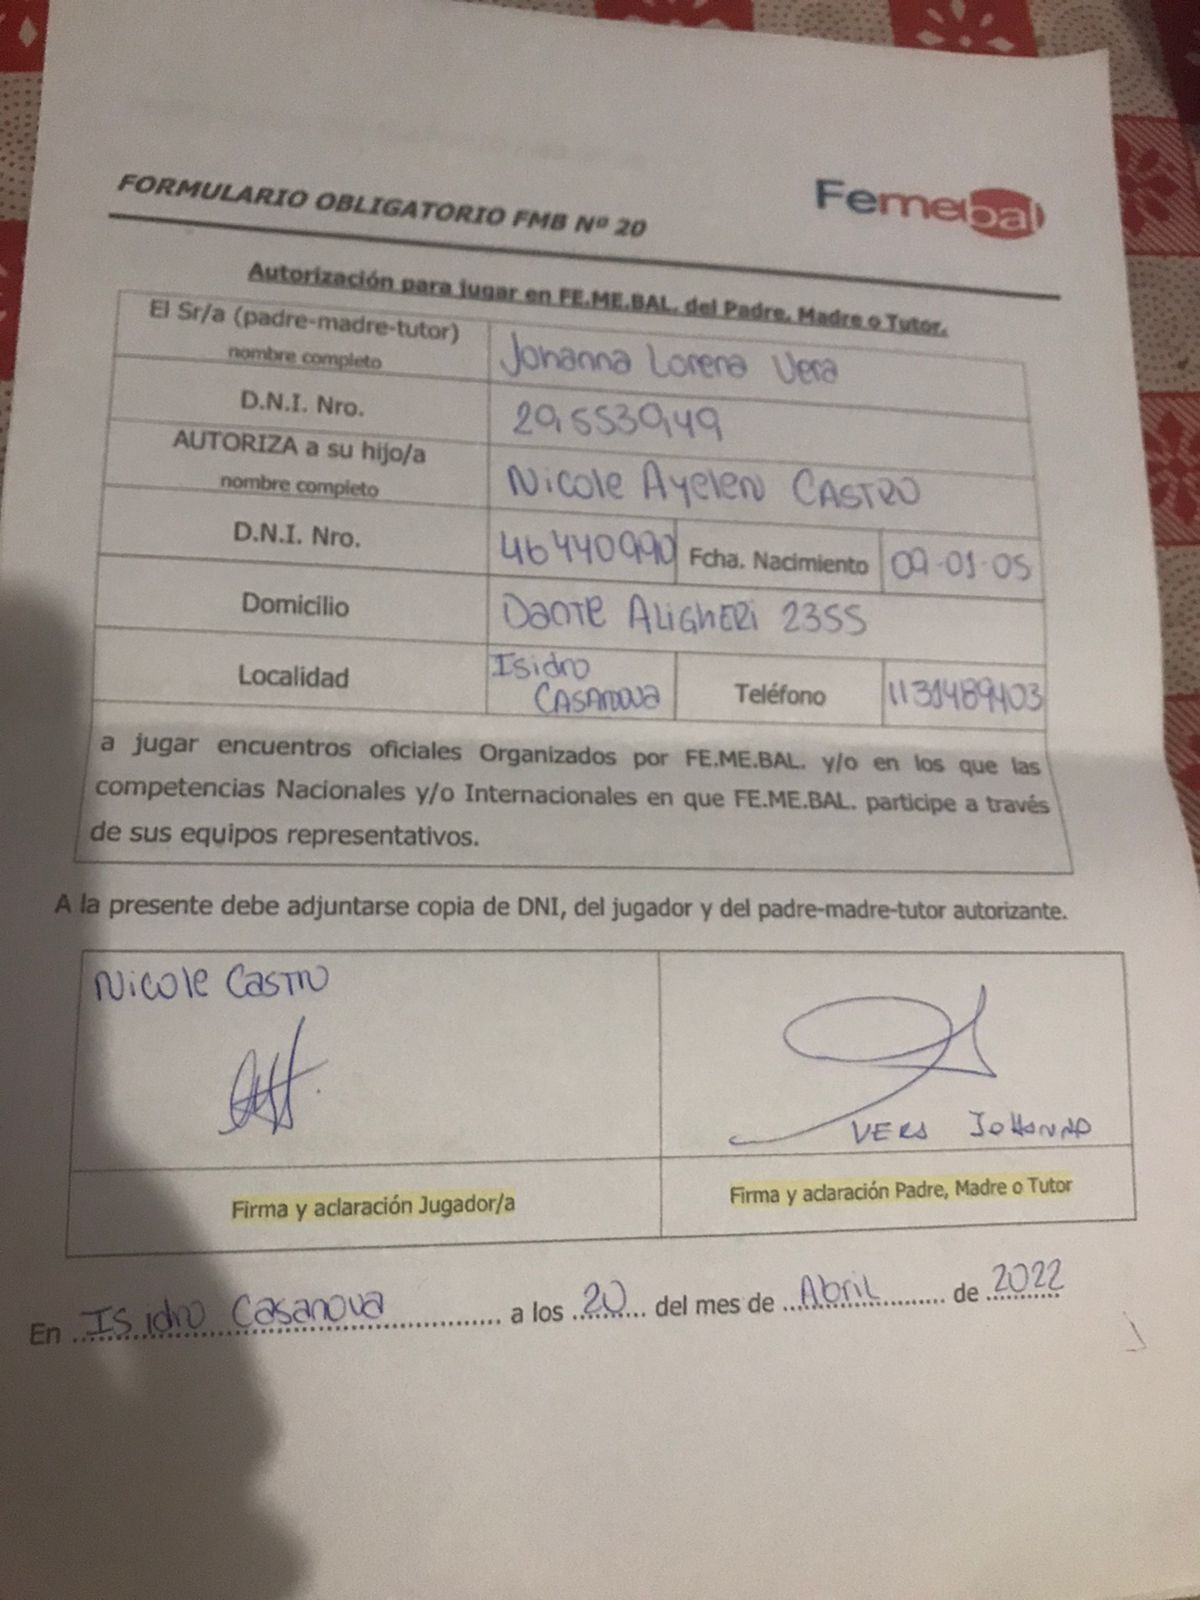 FORMULARIO OBLIGATORIO FMB Nº 20
Femebal
Autorización para jugar en FE.ME.BAL. del Padre, Madre o Tutor.
El Sr/a (padre-madre-tutor)
nombre completo
Johanna Lorena Vera
D.N.I. Nro.
29,553949
AUTORIZA a su hijo/a
nombre completo
Nicole Ayelen CASTRO
D.N.I. Nro.
46440990
Fcha. Nacimiento
09-01-05
Domicilio
DANTE ALIGHERI 2355
Localidad
Isidro
CASANOVA
Teléfono
1131489403
a jugar encuentros oficiales Organizados por FE.ME.BAL. y/o en los que las
competencias Nacionales y/o Internacionales en que FE.ME.BAL. participe a través
de sus equipos representativos.
A la presente debe adjuntarse copia de DNI, del jugador y del padre-madre-tutor autorizante.
Nicole Castro
VERA JOHANNA
Firma y aclaración Jugador/a
Firma y aclaración Padre, Madre o Tutor
En Isidro Casanova a los 20 del mes de Abril de 2022